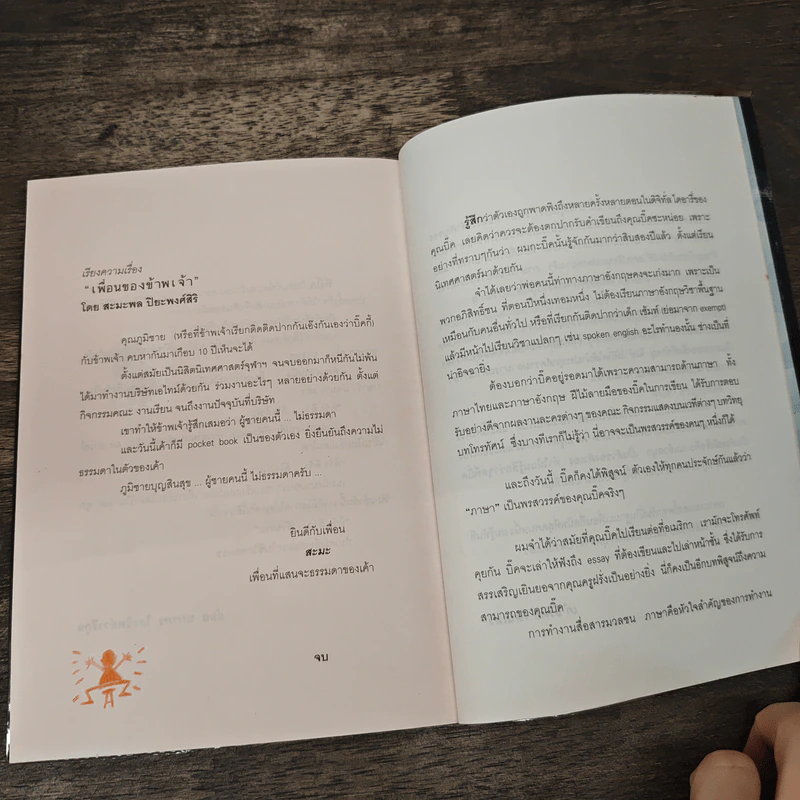 เรียงความเรื่อง
"เพื่อนของข้าพเจ้า"
โดย สะมะพล ปิยะพงศ์สิริ
คุณภูมิชาย (หรือที่ข้าพเจ้าเรียกติดติดปากกันเอ๊งกันเองว่าบิ๊กกี้)
กับข้าพเจ้า คบหากันมาเกือบ 10 ปีเห็นจะได้
ตั้งแต่สมัยเป็นนิสิตนิเทศศาสตร์จุฬาฯ จนจบออกมาก็หนีกันไม่พ้น
ได้มาทำงานบริษัทเอไทม์ด้วยกัน ร่วมงานอะไรๆ หลายอย่างด้วยกัน ตั้งแต่
กิจกรรมคณะ งานเรียน จนถึงงานปัจจุบันที่บริษัท
เขาทำให้ข้าพเจ้ารู้สึกเสมอว่า ผู้ชายคนนี้ ... ไม่ธรรมดา
และวันนี้เค้าก็มี pocket book เป็นของตัวเอง ยิ่งยืนยันถึงความไม่
ธรรมดาในตัวของเค้า
ภูมิชายบุญสินสุข ... ผู้ชายคนนี้ ไม่ธรรมดาครับ ...
ยินดีกับเพื่อน
สะมะ
เพื่อนที่แสนจะธรรมดาของเค้า
จบ
รู้สึกว่าตัวเองถูกพาดพิงถึงหลายครั้งหลายตอนในดิจิทัล ไดอารี่ของ
คุณบิ๊ก เลยคิดว่าควรจะต้องตกปากรับคำเขียนถึงคุณบิ๊กซะหน่อย เพราะ
อย่างที่ทราบๆกันว่า ผมกะบิ๊กนั้นรู้จักกันมากว่าสิบสองปีแล้ว ตั้งแต่เรียน
นิเทศศาสตร์มาด้วยกัน
จำได้เลยว่าพ่อคนนี้ท่าทางภาษาอังกฤษคงจะเก่งมาก เพราะเป็น
พวกอภิสิทธิ์ชน ที่ตอนปีหนึ่งเทอมหนึ่ง ไม่ต้องเรียนภาษาอังกฤษวิชาพื้นฐาน
เหมือนกับคนอื่นทั่วไป หรือที่เรียกกันติดปากว่าเด็ก เซ้มท์ (ย่อมาจาก exempt)
แล้วมีหน้าไปเรียนวิชาแปลกๆ เช่น spoken english อะไรทำนองนั้น ช่างเป็นที่
น่าอิจฉายิ่ง
ต้องบอกว่าบิ๊กอยู่รอดมาได้เพราะความสามารถด้านภาษา ทั้ง
ภาษาไทยและภาษาอังกฤษ ฝีไม้ลายมือของบิ๊กในการเขียน ได้รับการตอบ
รับอย่างดีจากผลงานละครต่างๆ ของคณะ กิจกรรมแสดงบนเวทีต่างๆ บทวิทยุ
บทโทรทัศน์ ซึ่งบางทีเราก็ไม่รู้ว่า นี่อาจจะเป็นพรสวรรค์ของคนๆ หนึ่งก็ได้
และถึงวันนี้ บิ๊กก็คงได้พิสูจน์ ตัวเองให้ทุกคนประจักษ์กันแล้วว่า
"ภาษา" เป็นพรสวรรค์ของคุณบิ๊กจริงๆ
ผมจำได้ว่าสมัยที่คุณบิ๊กไปเรียนต่อที่อเมริกา เรามักจะโทรศัพท์
คุยกัน บิ๊กจะเล่าให้ฟังถึง essay ที่ต้องเขียนและไปเล่าหน้าชั้น ซึ่งได้รับการ
สรรเสริญเยินยอจากคุณครูฝรั่งเป็นอย่างยิ่ง นี่ก็คงเป็นอีกบทพิสูจน์ถึงความ
สามารถของคุณบิ๊ก
การทำงานสื่อสารมวลชน ภาษาคือหัวใจสำคัญของการทำงาน